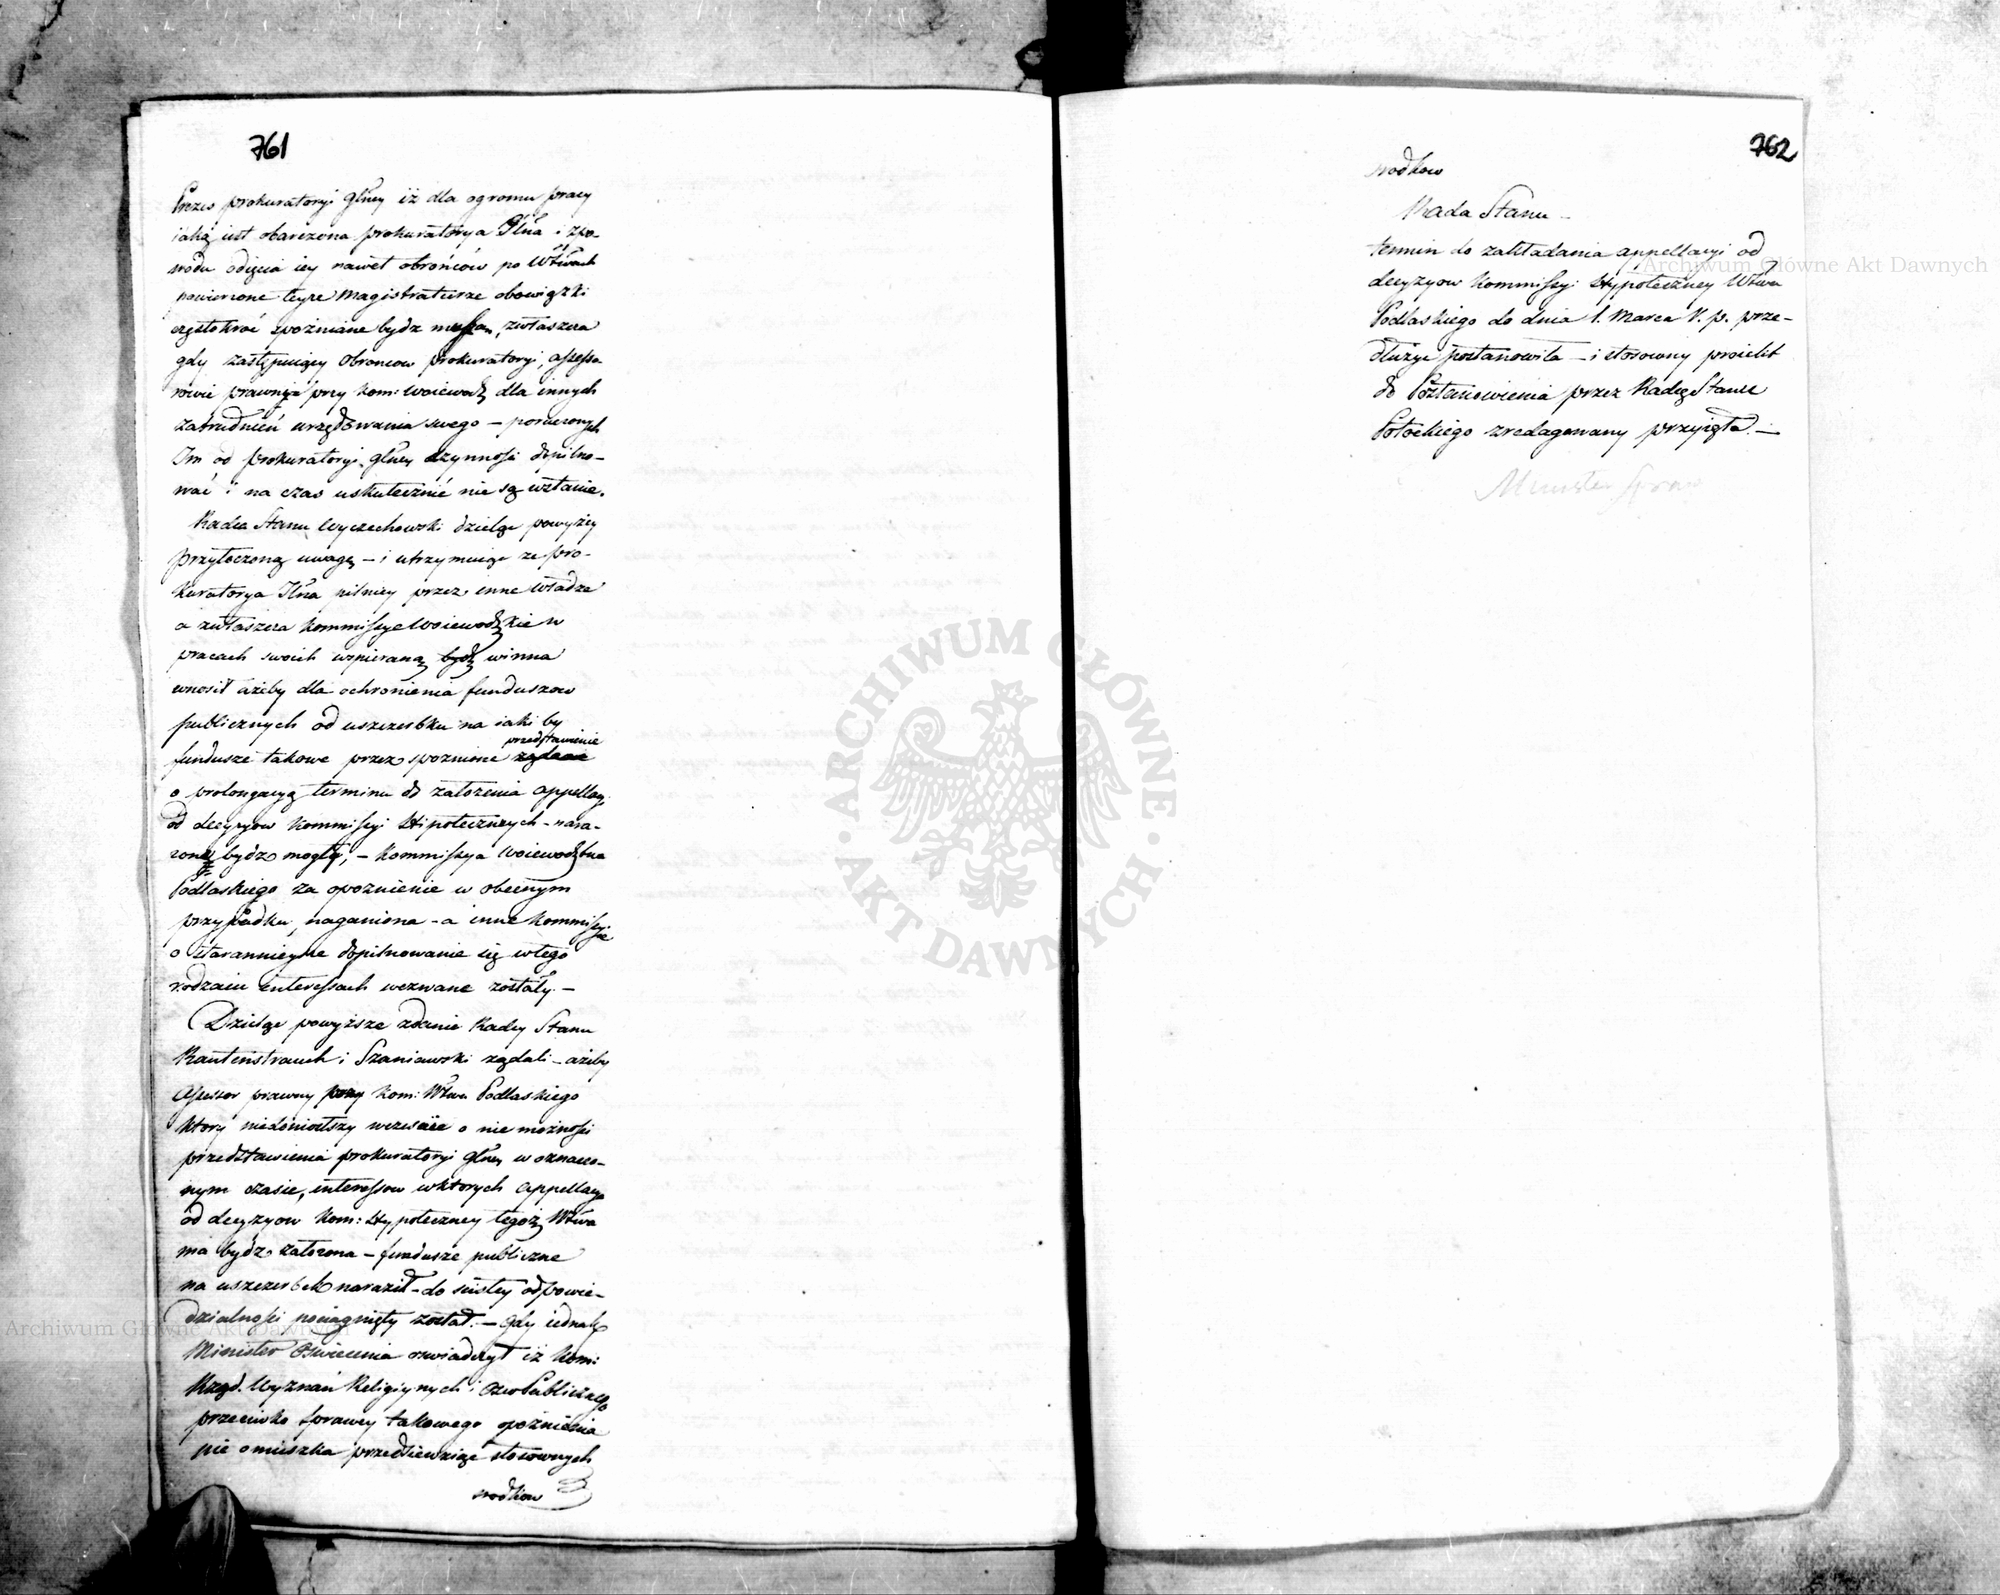 761
Prezes prokuratoryi Głney iż dla ogromu pracy
iaką iest obarczona prokuratorya Głna i z po-
wodu odięcia iey nawet obrońców po Wtwach
powierzone teyże Magistraturze obowiązki
częstokroć spoźniane bydź muszą, zwłaszcza
gdy zastępuiący Obroncow prokuratoryi, assesso-
rowie prawni przy Kom: Woiewodz dla innych
zatrudnień urzędowania swego – poruczonych
Im od prokuratoryi głney czynności dopilno-
wać i na czas uskutecznić nie są wstanie.
Radca Stanu Wyczechowski dzieląc powyżey
przytoczoną uwagę – i utrzymuiąc ze pro-
kuratorya Głna pilniey przez inne władze
a zwłaszcza Kommissye Woiewodzkie w
pracach swoich wspieraną bydź winna
wnosił ażeby dla ochronienia funduszow
publicznych od uszczerbku na iaki by
fundusze takowe przez spoznione przedstawienie
o prolongacyą terminu do założenia appellacyi
od decyzyow Kommissyi Hipotecznych – nara-
żone bydz mogły, – Kommissya Woiewodztwa
Podlaskiego za opoznienie w obecnym
przypadku, naganiona – a inne Kommissye
o starannieysze dopilnowanie się w tego
rodzaiu interessach wezwane zostały. –
Dzieląc powyższe zdanie Radcy Stanu
Rautenstrauch i Szaniawski żądali – ażeby
Assessor prawny przy Kom: Wtwa Podlaskiego
ktory niedoniosłszy wcześnie o nie możności
przedstawienia prokuratoryi Głney w oznaczo-
nym czasie, interessow w ktorych appellacya
od decyzyow Kom: Hypoteczney tegoż Wtwa
ma bydz założona – fundusze publiczne
na uszczerbek naraził – do ścisłey odpowie-
dzialności pociągnięty został. – Gdy iednak
Minister Oświecenia oswiadczył iż Kom:
Rząd. Wyznań Religiynych i Ośw Publicznego
przeciwko sprawcy takowego opoźnienia
nie omieszka przedsiewziąć stosownych
srodkow
762
srodkow
Rada Stanu –
termin do zakładania appellacyi od
decyzyow Kommissyi Hypoteczney Wtwa
Podlaskiego do dnia 1. Marca r. p. prze-
dłużyć postanowiła – i stosowny proiekt
do Postanowienia przez Radcę Stanu
Potockiego zredagowany przyięła. –
Minister Spraw
Archiwum Główne Akt Dawnych
ARCHIWUM GŁÓWNE
AKT DAWNYCH
Archiwum Główne Akt Dawnych